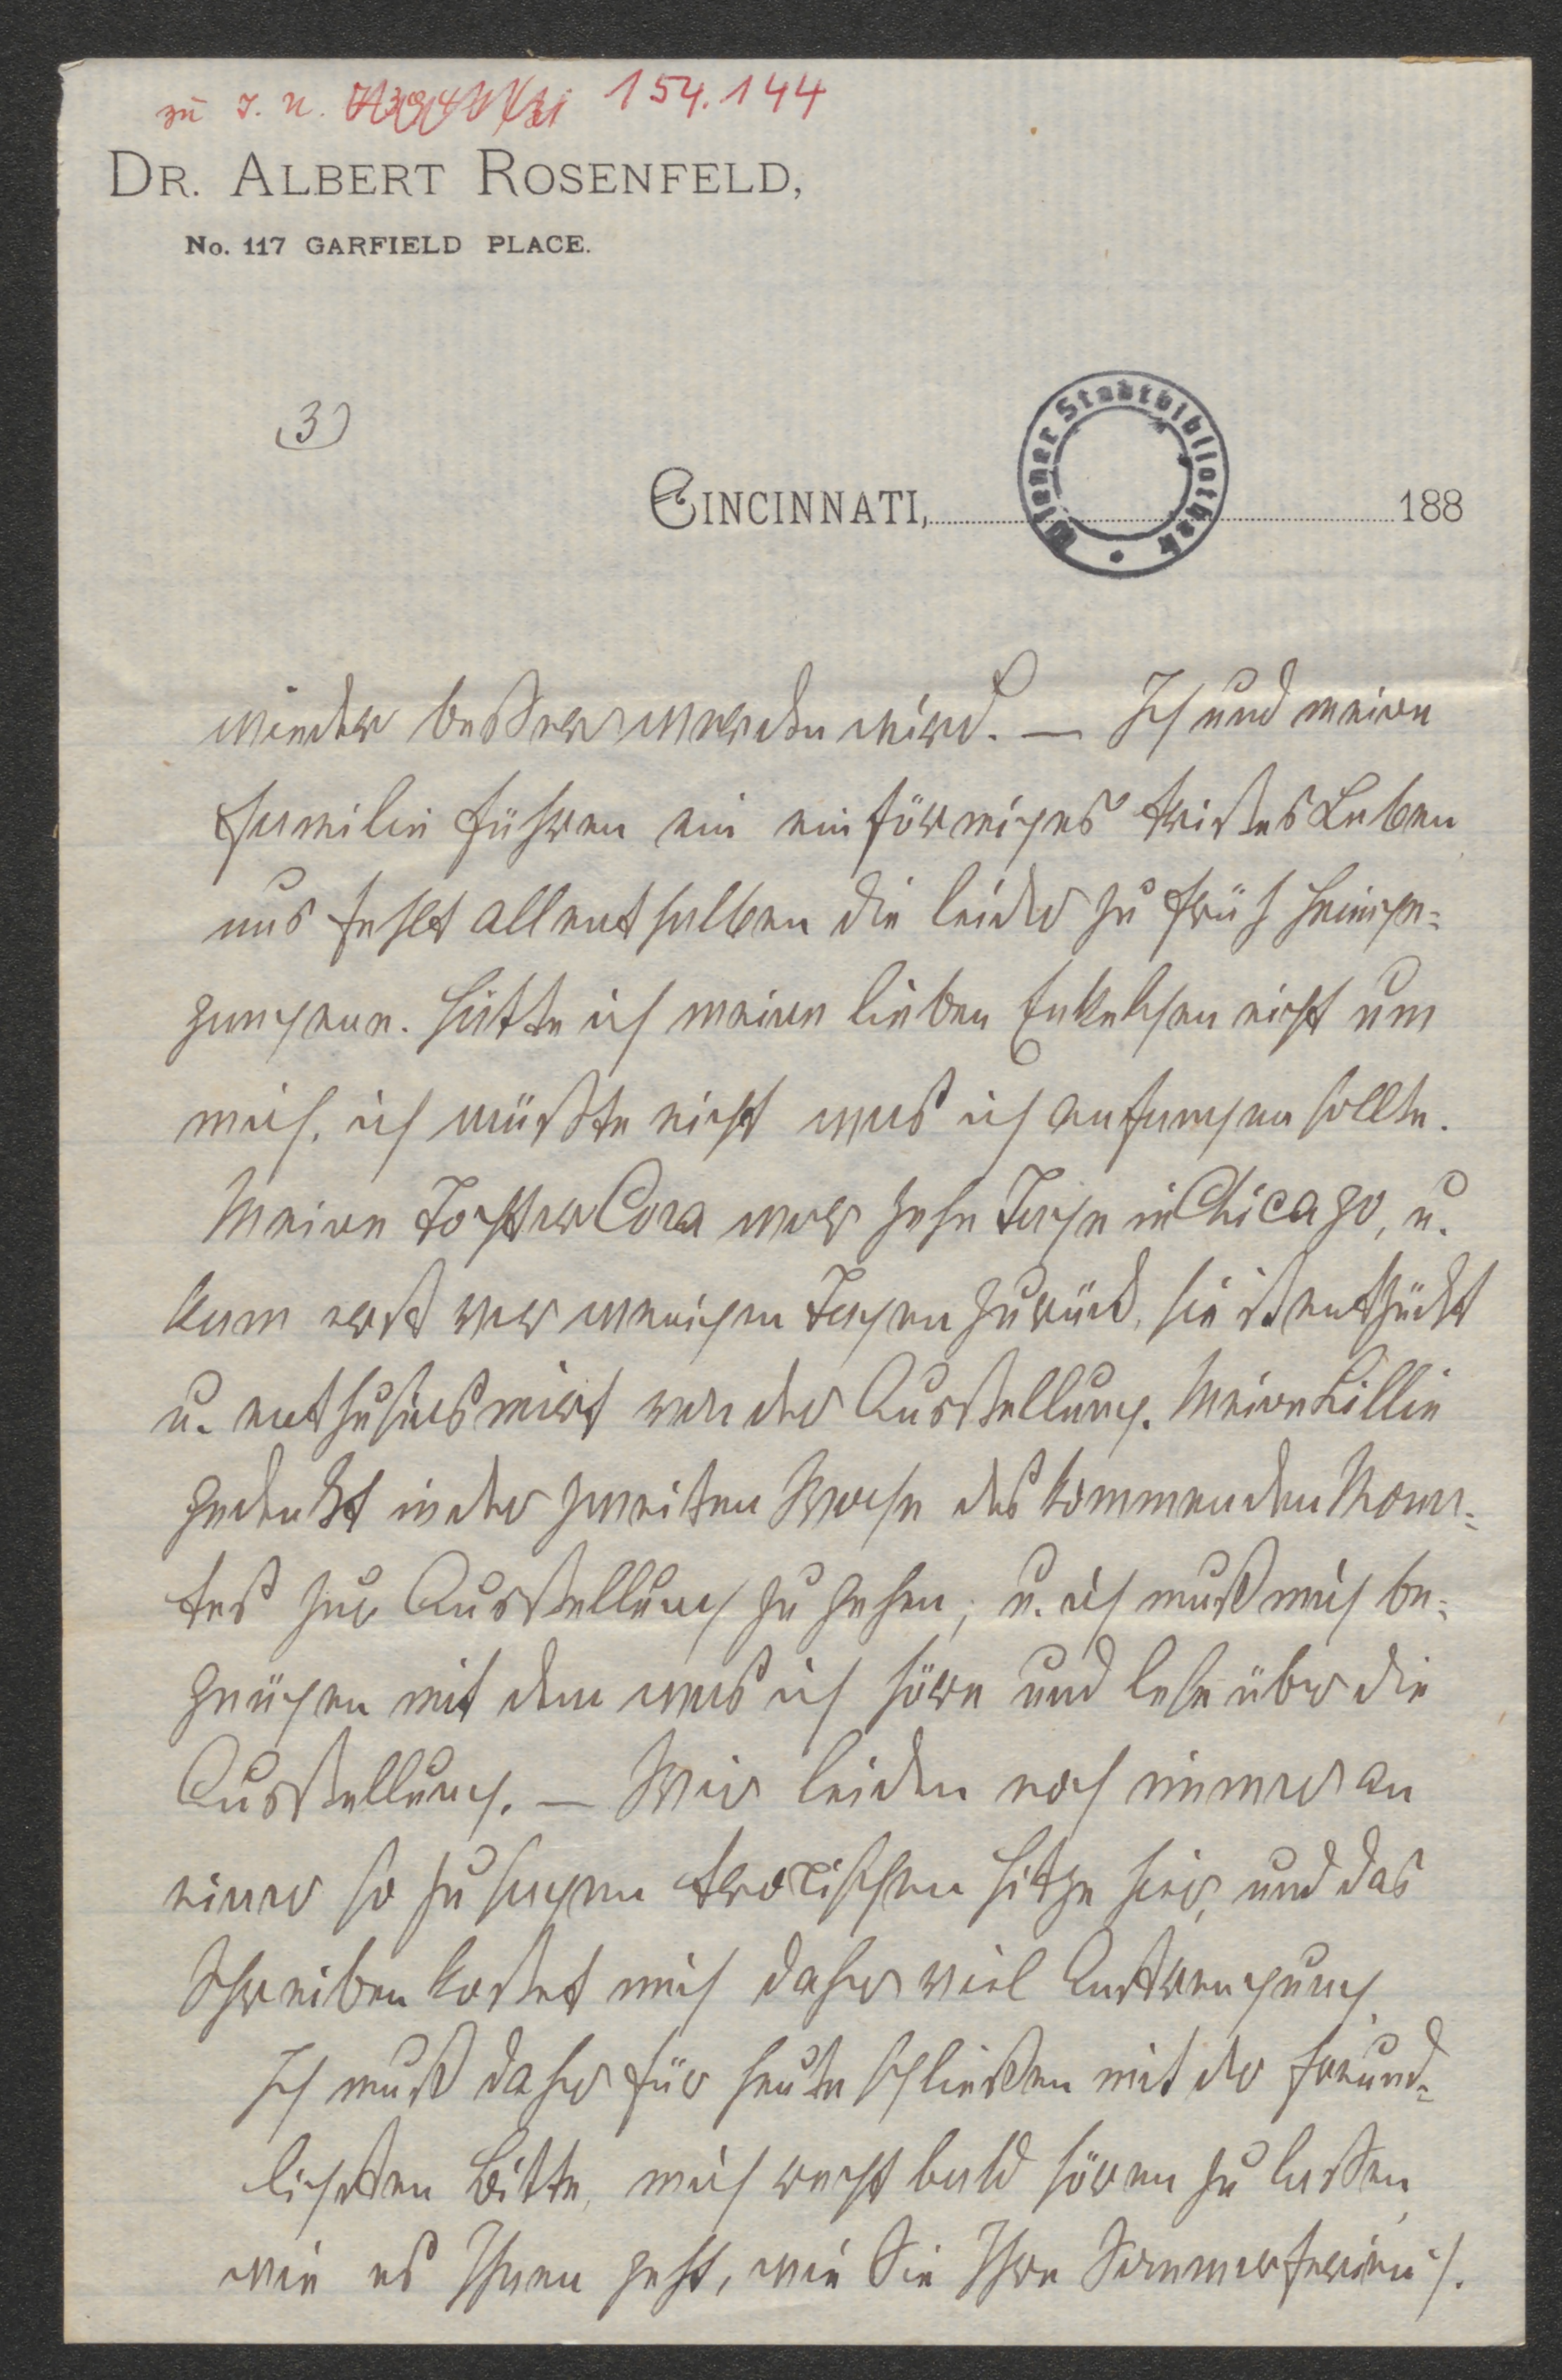 zu I. N. 154.144
DR. ALBERT ROSENFELD,
No. 117 GARFIELD PLACE.
(3)
Wiener Stadtbibliothek
CINCINNATI, 188
wieder beßer werden wird. — Ich und meine
Familie führen ein einförmiges tristes Leben
uns fehlt allenthalben die leider zu früh heimge-
gangene. Hätte ich meine lieben Enkelchen nicht um
mich, ich wüßte nicht was ich anfangen sollte.
Meine Tochter Cora war zehn Tage in Chicago, u.
kam erst vor wenigen Tagen zurück, sie ist entzückt
u. enthusiasmirt von der Ausstellung. Meine Lillie
gedenkt in der zweiten Woche des kommenden Mona-
tes zur Ausstellung zu gehen; u. ich muß mich be-
gnügen mit dem was ich höre und lese über die
Ausstellung. — Wir leiden noch immer an
einer so zu sagen tropischen Hitze hier, und das
Schreiben kostet mich daher viel Anstrengung.
Ich muß daher für heute schließen mit der freund-
lichsten Bitte, mich recht bald hören zu laßen,
wie es Ihnen geht, wie Sie Ihre Sommerferien /.